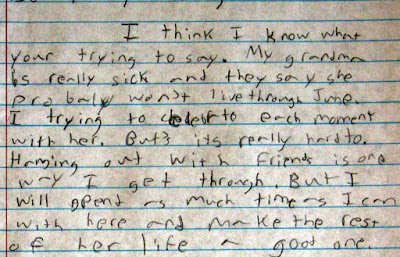 I think I know what
your trying to say. My grandma
is really sick and they say she
probaly won't live through June.
I trying to to each moment
with her. But its really hard to.
Haming out with friends is one
way I get through. But I
will spend as much time as I can
with here and make the rest
of her life a good one.